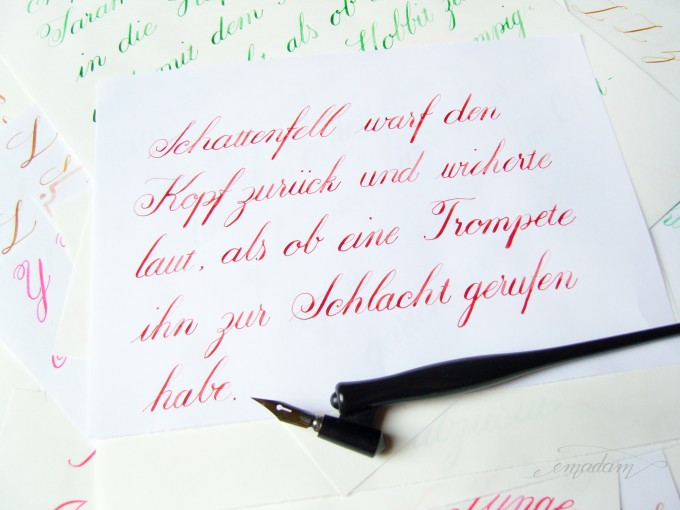 in die
mit dem
als ob
Hobbit
Schattenfell warf den
Kopf zurück und wieherte
laut, als ob eine Trompete
ihn zur Schlacht gerufen
habe.
Y
emadam